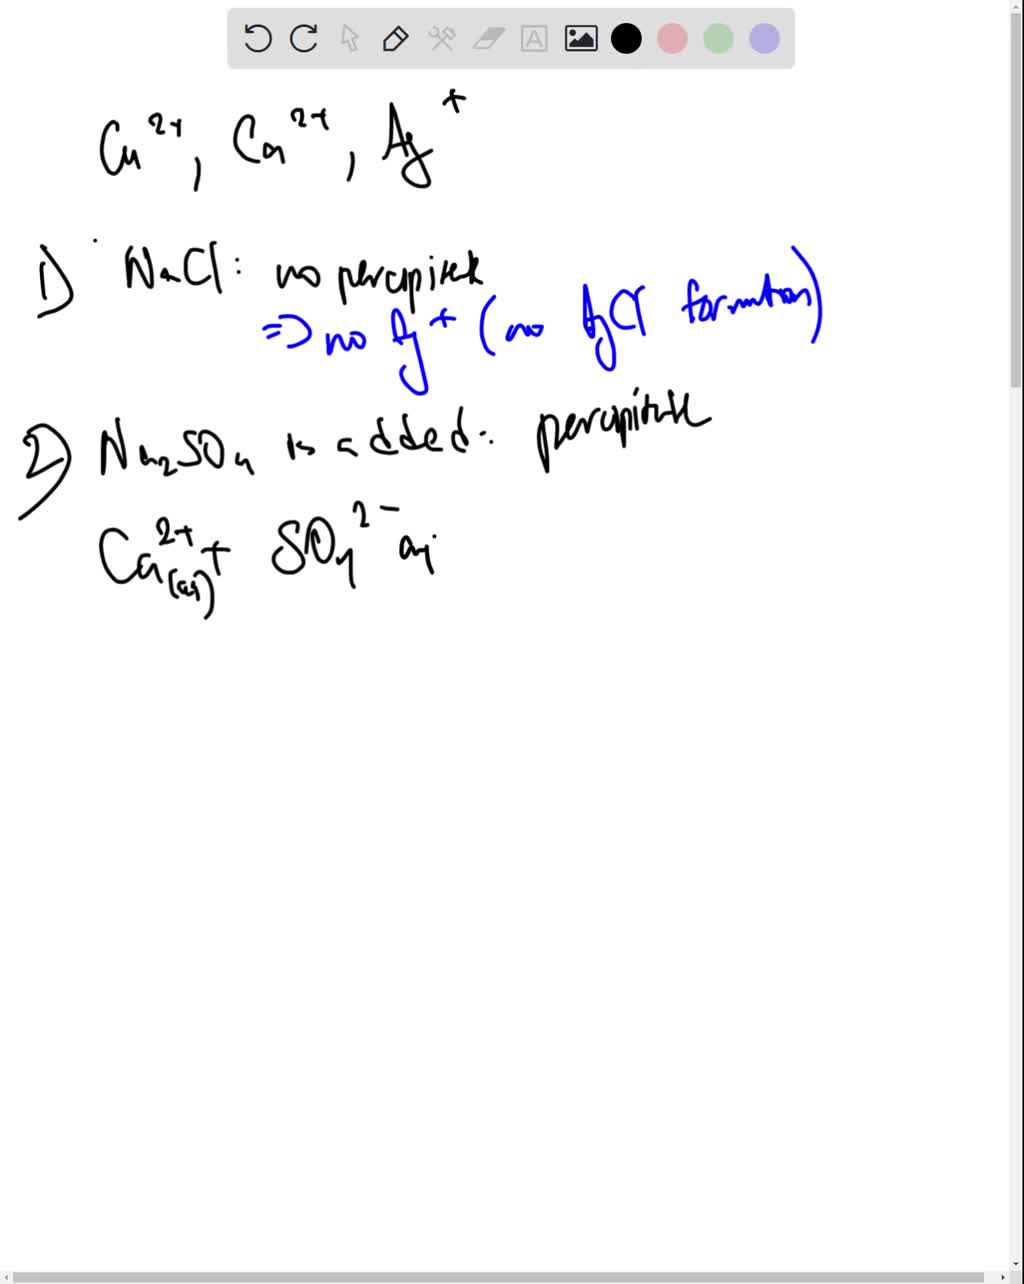 Cu²⁺, Ca²⁺, Ag⁺
1) NaCl: no percipitate
=> no Ag⁺ (no AgCl formation)
2) Na₂SO₄ is added: percipitate
Ca²⁺(aq) + SO₄²⁻ aq